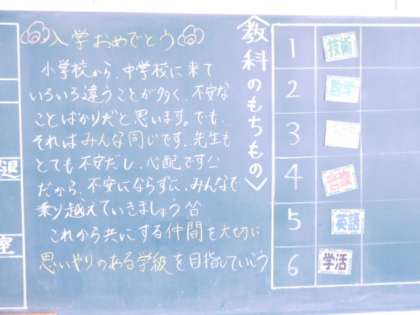 入学おめでとう
小学校から、中学校に来て
いろいろ違うことが多く、不安な
ことばかりだと思います。でも、
それはみんな同じです。先生も
とても不安だし、心配です
だから、不安にならずに、みんなで
乗り越えていきましょう
これから共にする仲間を大切に
思いやりのある学級を目指していこう
教科のもちもの
1 技術
2 数学
3
4
5 英語
6 学活